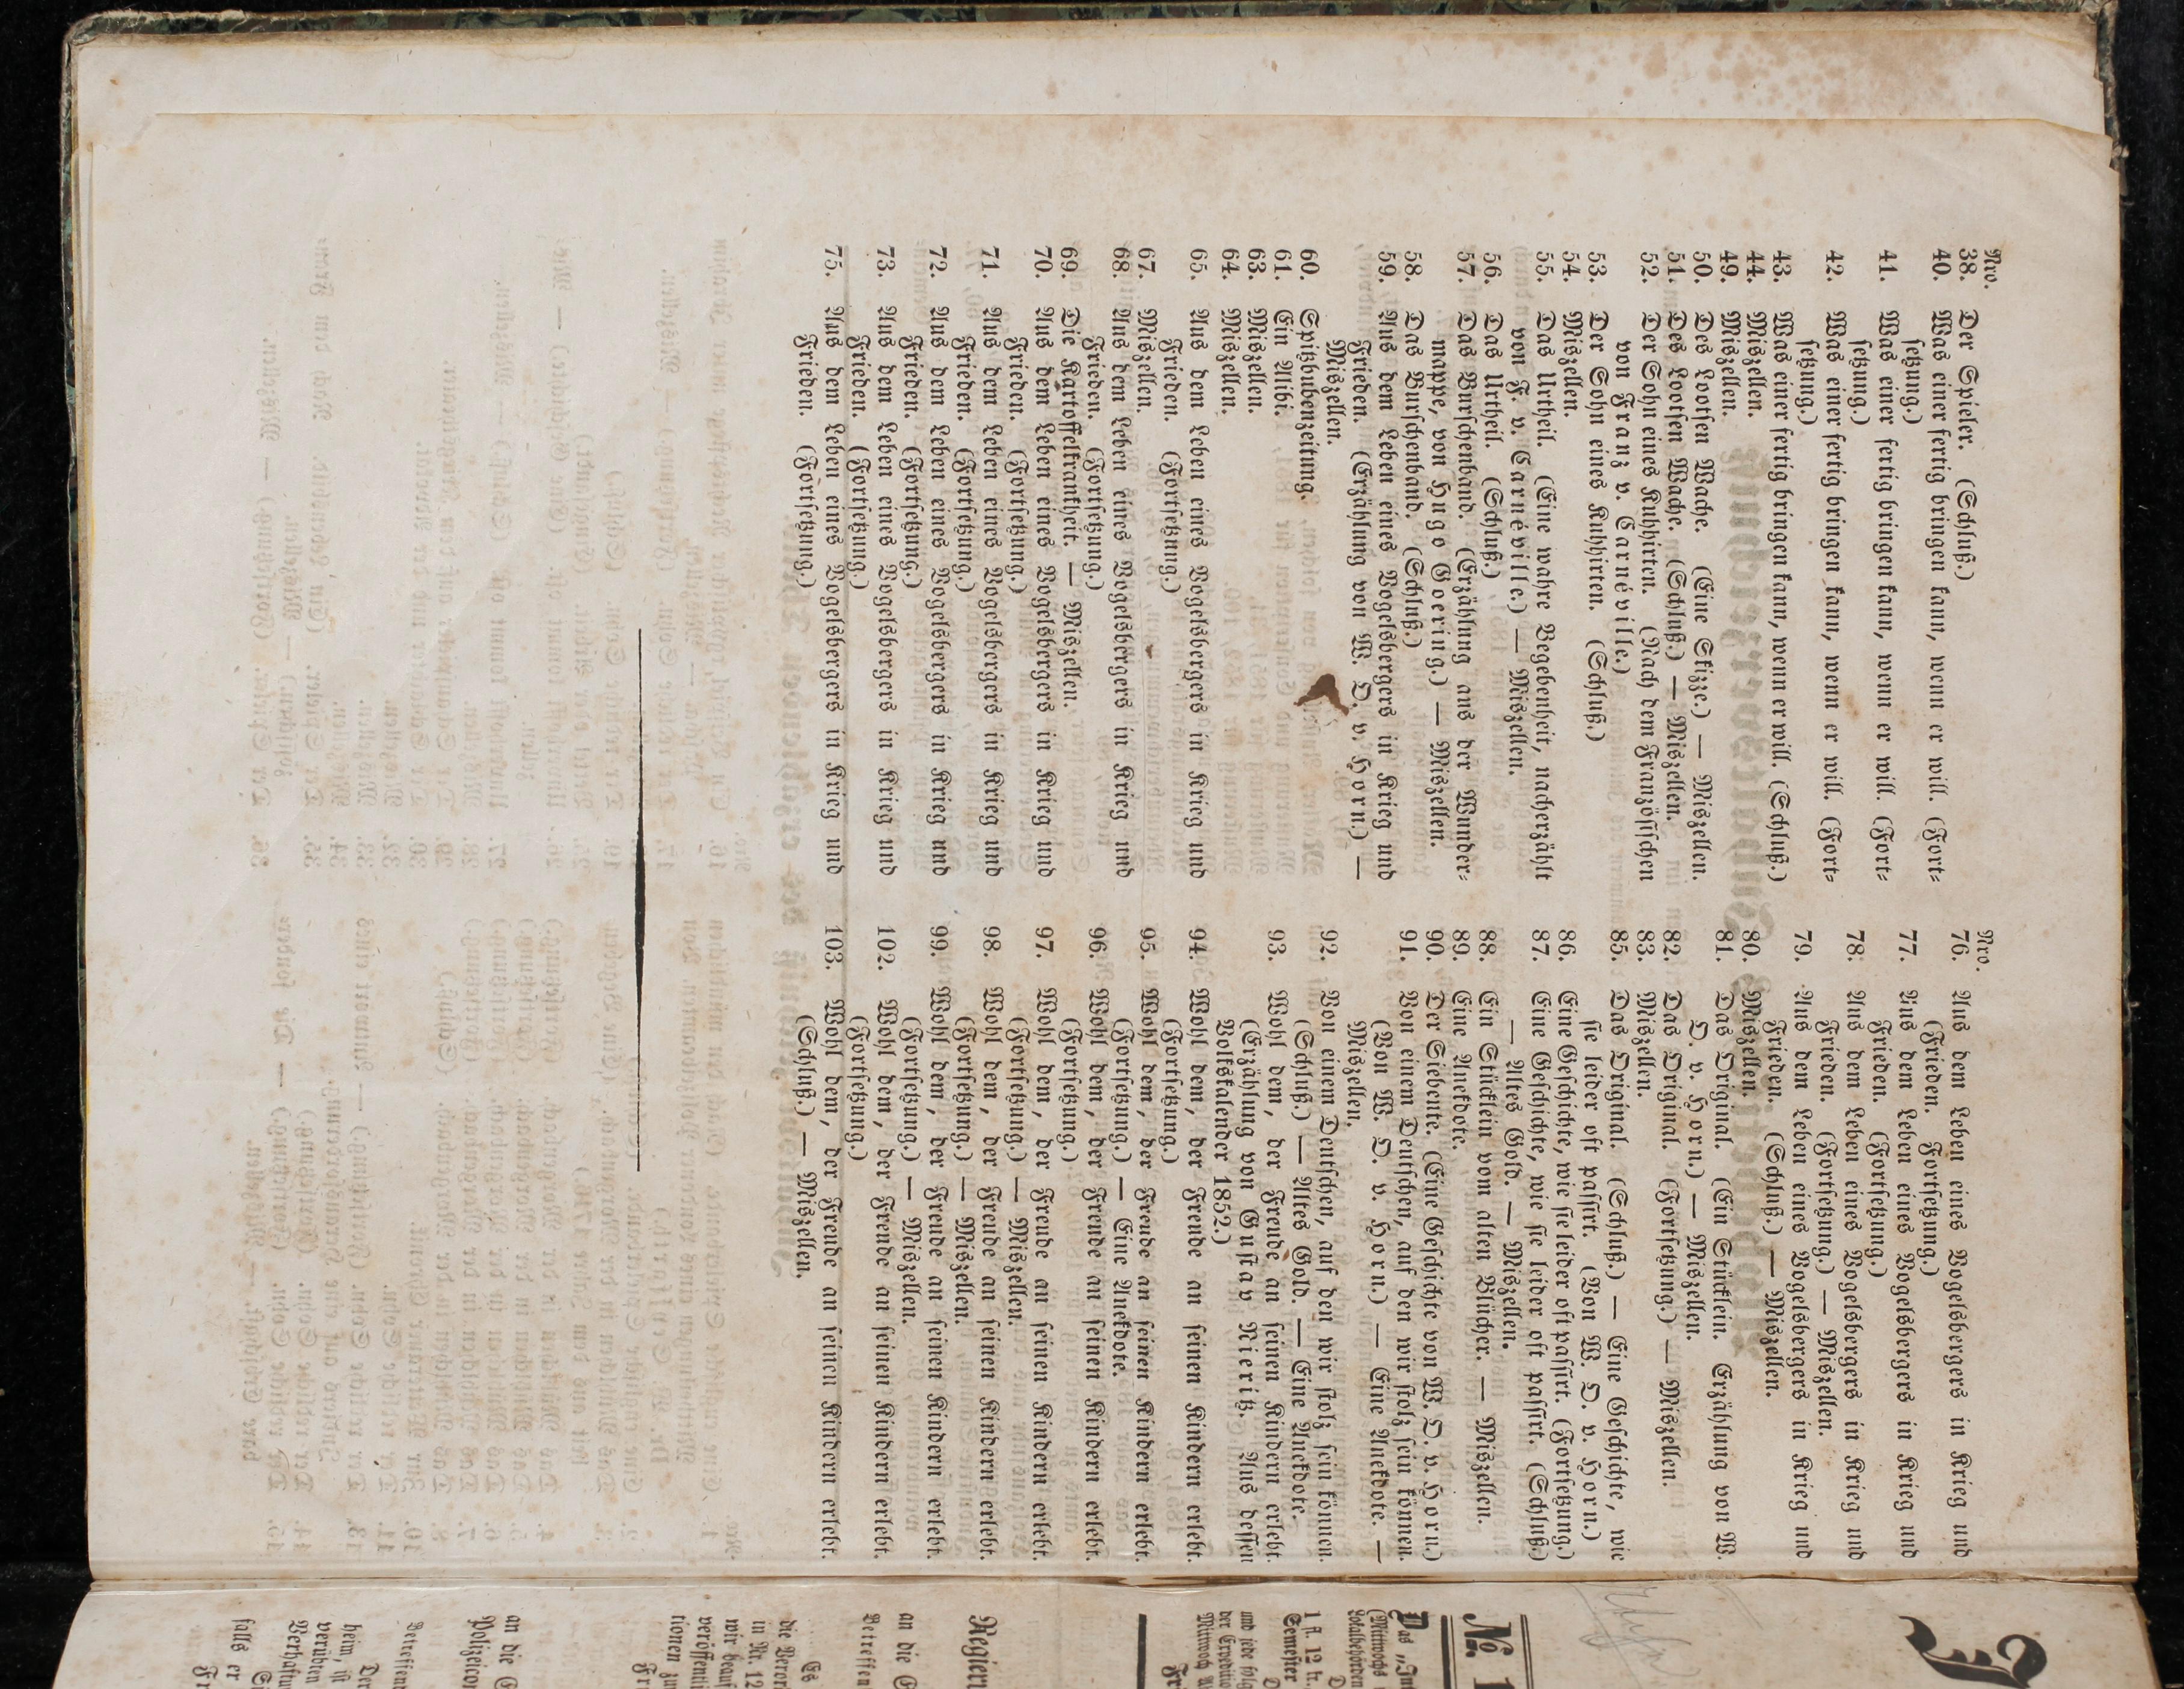 Nro.
38. Der Spieler. (Schluß.)
40. Was einer fertig bringen kann, wenn er will. (Fort-
setzung.)
41. Was einer fertig bringen kann, wenn er will. (Fort-
setzung.)
42. Was einer fertig bringen kann, wenn er will. (Fort-
setzung.)
43. Was einer fertig bringen kann, wenn er will. (Schluß.)
44. Miszellen.
49. Miszellen.
50. Des Lootsen Wache. (Eine Skizze.) — Miszellen.
51. Des Lootsen Wache. (Schluß.) — Miszellen.
52. Der Sohn eines Kuhhirten. (Nach dem Französischen
von Franz v. Carnéville.)
53. Der Sohn eines Kuhhirten. (Schluß.)
54. Miszellen.
55. Das Urtheil. (Eine wahre Begebenheit, nacherzählt
von F. v. Carnéville.) — Miszellen.
56. Das Urtheil. (Schluß.)
57. Das Burschenband. (Erzählung aus der Wunder-
mappe, von Hugo Goering.) — Miszellen.
58. Das Burschenband. (Schluß.)
59. Aus dem Leben eines Vogelsbergers in Krieg und
Frieden. (Erzählung von W. O. v. Horn.) —
Miszellen.
60. Spitzbubenzeitung.
61. Ein Alibi.
63. Miszellen.
64. Miszellen.
65. Aus dem Leben eines Vogelsbergers in Krieg und
Frieden. (Fortsetzung.)
67. Miszellen.
68. Aus dem Leben eines Vogelsbergers in Krieg und
Frieden. (Fortsetzung.)
69. Die Kartoffelkrankheit. — Miszellen.
70. Aus dem Leben eines Vogelsbergers in Krieg und
Frieden. (Fortsetzung.)
71. Aus dem Leben eines Vogelsbergers in Krieg und
Frieden. (Fortsetzung.)
72. Aus dem Leben eines Vogelsbergers in Krieg und
Frieden. (Fortsetzung.)
73. Aus dem Leben eines Vogelsbergers in Krieg und
Frieden. (Fortsetzung.)
75. Aus dem Leben eines Vogelsbergers in Krieg und
Frieden. (Fortsetzung.)
Nro.
76. Aus dem Leben eines Vogelsbergers in Krieg und
(Frieden. Fortsetzung.)
77. Aus dem Leben eines Vogelsbergers in Krieg und
Frieden. (Fortsetzung.)
78. Aus dem Leben eines Vogelsbergers in Krieg und
Frieden. (Fortsetzung.) — Miszellen.
79. Aus dem Leben eines Vogelsbergers in Krieg und
Frieden. (Schluß.) — Miszellen.
80. Miszellen.
81. Das Original. (Ein Stücklein. Erzählung von W.
O. v. Horn.) — Miszellen.
82. Das Original. (Fortsetzung.) — Miszellen.
83. Miszellen.
85. Das Original. (Schluß.) — Eine Geschichte, wie
sie leider oft passirt. (Von W. O. v. Horn.)
86. Eine Geschichte, wie sie leider oft passirt. (Fortsetzung.)
87. Eine Geschichte, wie sie leider oft passirt. (Schluß.)
— Altes Gold. — Miszellen.
88. Ein Stücklein vom alten Blücher. — Miszellen.
89. Eine Anekdote.
90. Der Siebente. (Eine Geschichte von W. O. v. Horn.)
91. Von einem Deutschen, auf den wir stolz sein können.
(Von W. O. v. Horn.) — Eine Anekdote. —
Miszellen.
92. Von einem Deutschen, auf den wir stolz sein können.
(Schluß.) — Altes Gold. — Eine Anekdote.
93. Wohl dem, der Freude an seinen Kindern erlebt.
(Erzählung von Gustav Nieritz. Aus dessen
Volkskalender 1852.)
94. Wohl dem, der Freude an seinen Kindern erlebt.
(Fortsetzung.)
95. Wohl dem, der Freude an seinen Kindern erlebt.
(Fortsetzung.) — Eine Anekdote.
96. Wohl dem, der Freude an seinen Kindern erlebt.
(Fortsetzung.)
97. Wohl dem, der Freude an seinen Kindern erlebt.
(Fortsetzung.) — Miszellen.
98. Wohl dem, der Freude an seinen Kindern erlebt.
(Fortsetzung.) — Miszellen.
99. Wohl dem, der Freude an seinen Kindern erlebt.
(Fortsetzung.) — Miszellen.
102. Wohl dem, der Freude an seinen Kindern erlebt.
(Fortsetzung.)
103. Wohl dem, der Freude an seinen Kindern erlebt.
(Schluß.) — Miszellen.
№ 1
Das „In
(Mittwochs
Lokalbehörden
1 fl. 12 kr.
Semester
und jede fol
der Expeditio
Mittwoch
Regieru
an die G
Betreffen
Es
die Veror
in Nr. 12
wir beauf
veröffentli
tionen zu
Fr
an die G
Polizeicom
Betreffen
Der
heim, ist
verübten
Verhaftu
Si
falls er
Fr